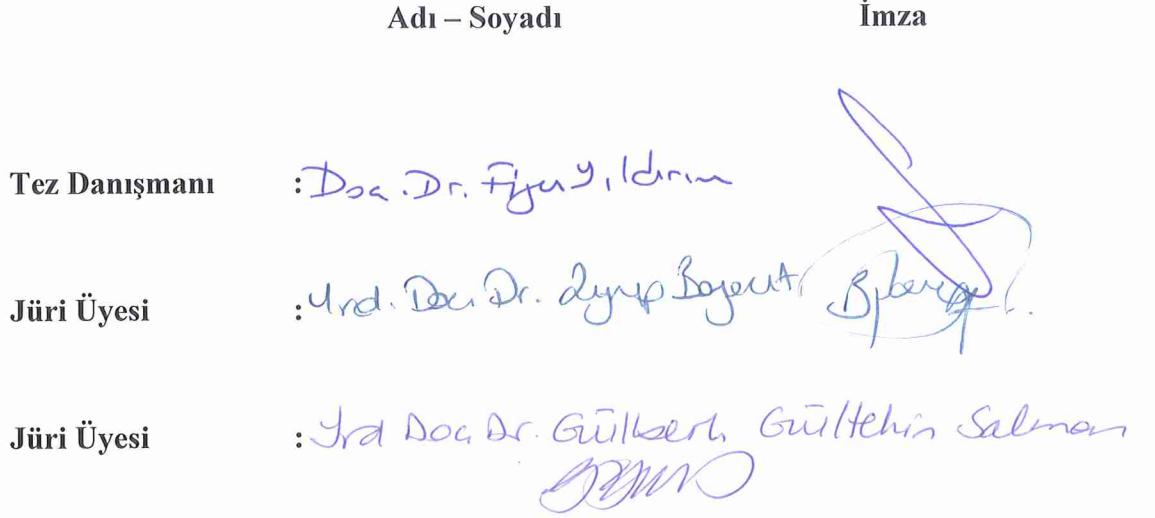 Adı – Soyadı İmza
Tez Danışmanı : Doç. Dr. Figen Yıldırım
Jüri Üyesi : Yrd. Doç. Dr.
Jüri Üyesi : Yrd Doç Dr. Gülberk Gültekin Salman